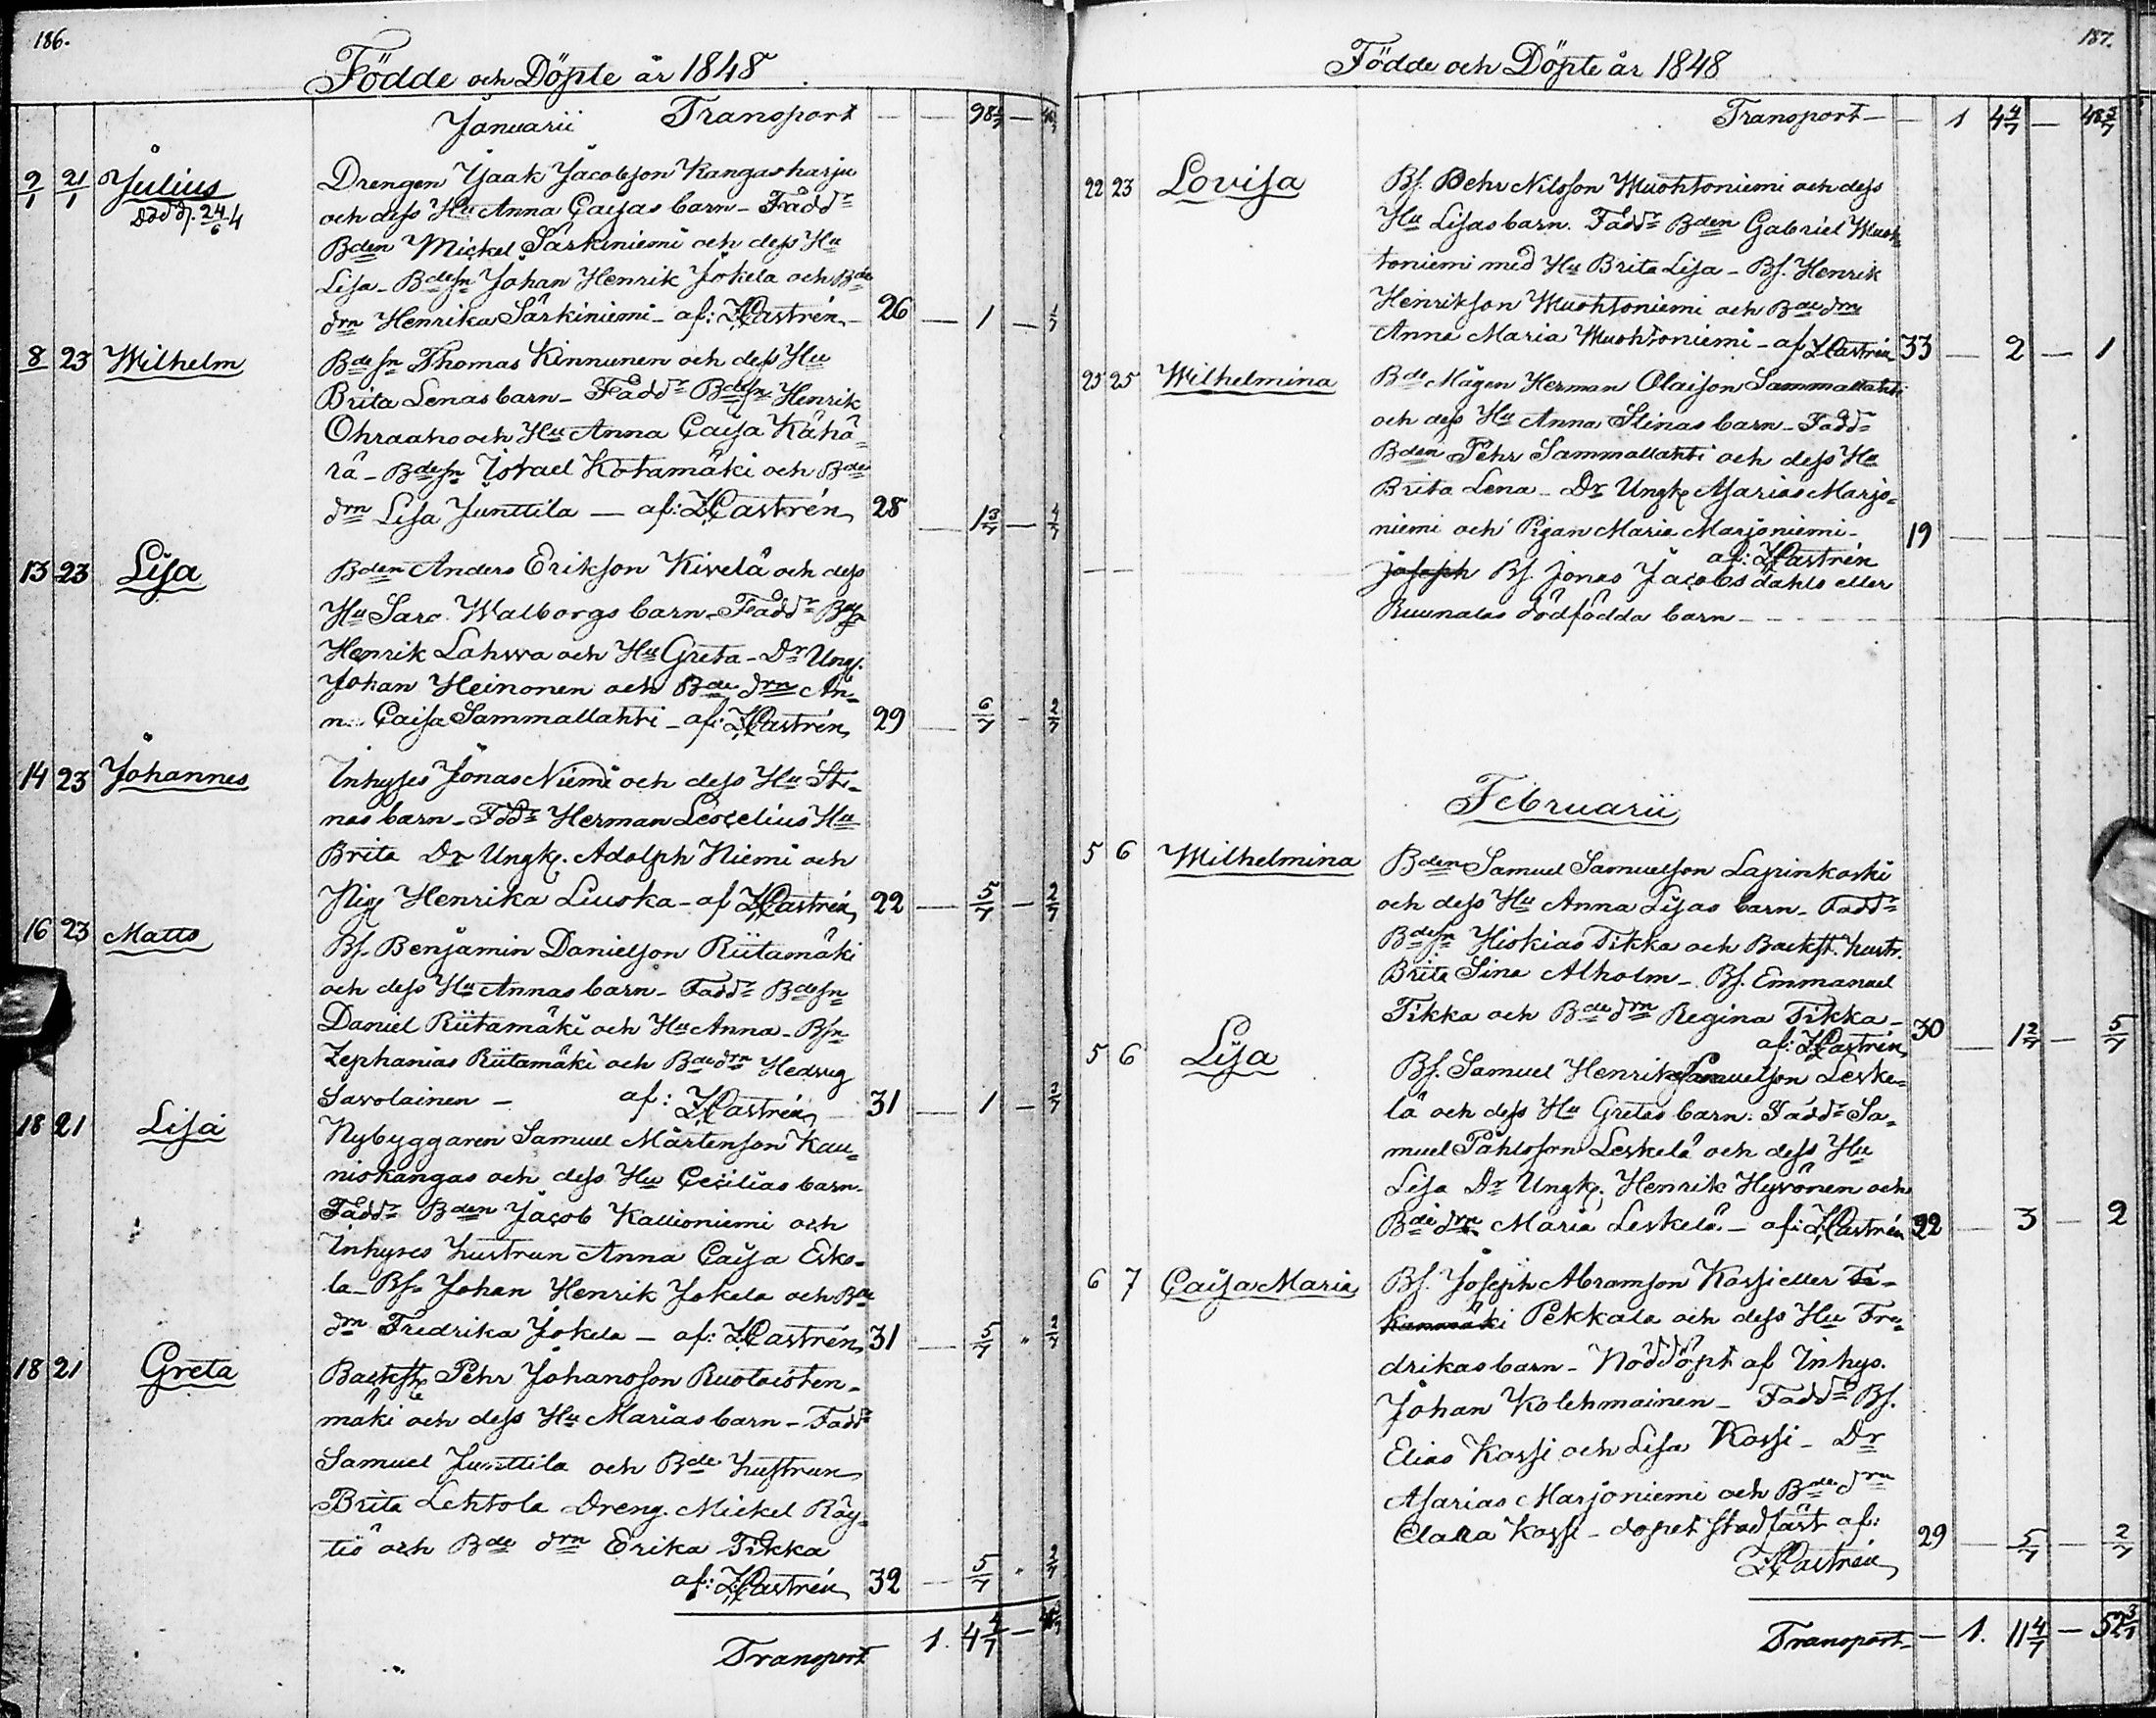 186.
Födde och Döpte år 1848
Januarii Transport — — 98 4/7 —
9/1 21/1 Julius Drengen Isaak Jacobsson Kangasharju
död d. 24/6 4 och dess Hu Anna Caisas barn - Faddr
Bden Mickel Särkiniemi och dess Hu
Lisa - Bdesn Johan Henrik Jokela och Bde
drn Henrika Särkiniemi - af: ZCastrén - 26 — 1 — 1/7
8 23 Wilhelm Bdesn Thomas Kinnunen och dess Hu
Brita Lenas barn - Faddr Bdesn Henrik
Ohraaho och Hu Anna Caisa Kähä-
rä - Bdesn Israel Kotamäki och Bde
drn Lisa Junttila — af: ZCastrén 28 — 1 3/7 — 4/7
13 23 Lisa Bden Anders Erikson Kivelä och dess
Hu Sara Walborgs barn - Faddr Bdsn
Henrik Lahwa och Hu Greta - Dr Ungk.
Johan Heinonen och Bde drn An-
na Caisa Sammallahti - af: ZCastrén 29 — 6/7 - 2/7
14 23 Johannes Inhyses Jonas Niemi och dess Hu Sti-
nas barn - Fddr Herman Leocelius Hu
Brita Dr Ungk. Adolph Niemi och
Pig Henrika Liuska - af ZCastrén 22 — 5/7 - 2/7
16 23 Matts Bs. Benjamin Danielson Riitamäki
och dess Hu Annas barn - Faddr Bdesn
Daniel Riitamäki och Hu Anna - Bsn
Zephanias Riitamäki och Bde drn Hedvig
Savolainen — af: ZCastrén 31 — 1 - 2/7
18 21 Lisa Nybyggaren Samuel Mårtenson Kau-
niskangas och dess Hu Cecilias barn -
Faddr Bden Jacob Kallioniemi och
Inhyses hustrun Anna Caisa Esko-
la - Bs. Johan Henrik Jokela och Bde
drn Fredrika Jokela — af: ZCastrén 31 — 5/7 " 2/7
18 21 Greta Backst Pehr Johansson Ruotoisten-
mäki och dess Hu Marias barn - Faddr
Samuel Junttila och Bde hustrun
Brita Lehtola Dreng. Mickel Räy-
tiö och Bde drn Erika Tikka
af: ZCastrén 32 — 5/7 " 2/7
Transport 1. 4 4/7 —
187.
Födde och Döpte år 1848
Transport — — 1 4 4/7 — 48 5/7
22 23 Lovisa Bs. Pehr Nilsson Muohtoniemi och dess
Hu Lisas barn. Faddr Bden Gabriel Muoh-
toniemi med Hu Brita Lisa - Bs. Henrik
Henrikson Muohtoniemi och Bde drn
Anna Maria Muohtoniemi - af ZCastrén 33 — 2 — 1
25 25 Wilhelmina Bde Mågen Herman Olaison Sammallahti
och dess Hu Anna Stinas barn - Fadd-
Bden Pehr Sammallahti och dess Hu
Brita Lena - Dr Ungk Asarias Marjo-
niemi och Pigan Maria Marjoniemi - 19 — — — —
af: ZCastrén
Joseph Bs. Jonas Jacobs dahls eller
Ruunalas dödfödda barn -
Februarii
5 6 Wilhelmina Bden Samuel Samuelson Lapinkoski
och dess Hu Anna Lisas barn - Faddr
Bdesn Hiskias Tikka och Backst. hustr.
Brita Sina Alholm - Bs. Emmanuel
Tikka och Bde drn Regina Tikka -
af: ZCastrén 30 — 1 2/7 — 5/7
5 6 Lisa Bs. Samuel Henrik Samuelson Leske-
lä och dess Hu Gretas barn: Faddr Sa-
muel Påhlsson Leskelä och dess Hu
Lisa Dr Ungk. Henrik Hyvönen och
Bde drn Maria Leskelä - af: ZCastrén 22 — 3 — 2
6 7 Caisa Maria Bs. Joseph Abramson Kassi eller Ti-
kanmäki Pekkala och dess Hu Fre-
drikas barn - Nöddöpt af Inhys.
Johan Kolehmainen - Faddr Bs.
Elias Kassi och Lisa Kassi - Dr
Asarias Marjoniemi och Bde drn
Clara Kassi - dopet stadfäst af: 29 — 5/7 — 2/7
ZCastrén
Transport — 1. 11 4/7 — 52 3/7